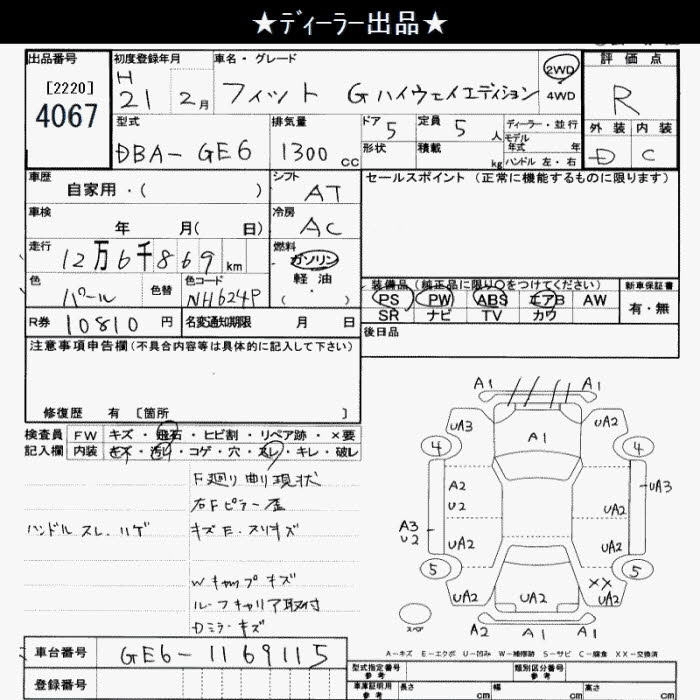 ★ディーラー出品★
出品番号 初度登録年月 車名・グレード 評価点
[2220] 4067
H 21 2月 フィット Gハイウェイエディション 2WD 4WD R
型式 排気量 ドア 5 定員 5 人 ディーラー・並行 外装 内装
DBA-GE6 1300 CC 形状 積載 kg モデル年式 年 ハンドル 左・右 D C
車歴 シフト セールスポイント(正常に機能するものに限ります)
自家用・( ) AT
車検 冷房
年 月( 日) AC
走行 燃料
12万6千869 km ガソリン
軽油
( ・ )
色 色替 色コード 装備品(純正品に限り○をつけてください) 新車保証書
パール NH624P PS PW ABS エアB AW 有・無
SR ナビ TV カワ
R券 10810 円 名変通知期限 月 日 後日品
注意事項申告欄(不具合内容等は具体的に記入して下さい)
修復歴 有 [箇所 ]
検査員 FW キズ・飛石・ヒビ割・リペア跡・×要
記入欄 内装 キズ・汚れ・コゲ・穴・スレ・キレ・破レ
F廻り曲り現状
右Fピラー歪
ハンドルスレ.ハゲ キズE.スリキズ
Wキャップキズ
ルーフキャリア取付
Dミラーキズ
A1 A1
UA3 A1 UA2
4 4
A2 U2 UA3
A3 U2 UA2
UA2 UA2
5 5
XX
UA2 UA2 UA2
スペア
A2 A1 A1
A-キズ E-エクボ U-凹み W-補修跡 S-サビ C-腐食 XX-交換済
車台番号 GE6-1169115 型式指定番号 参考 類別区分番号 参考
登録番号 車庫証明用 参考 長さ cm 幅 cm 高さ cm